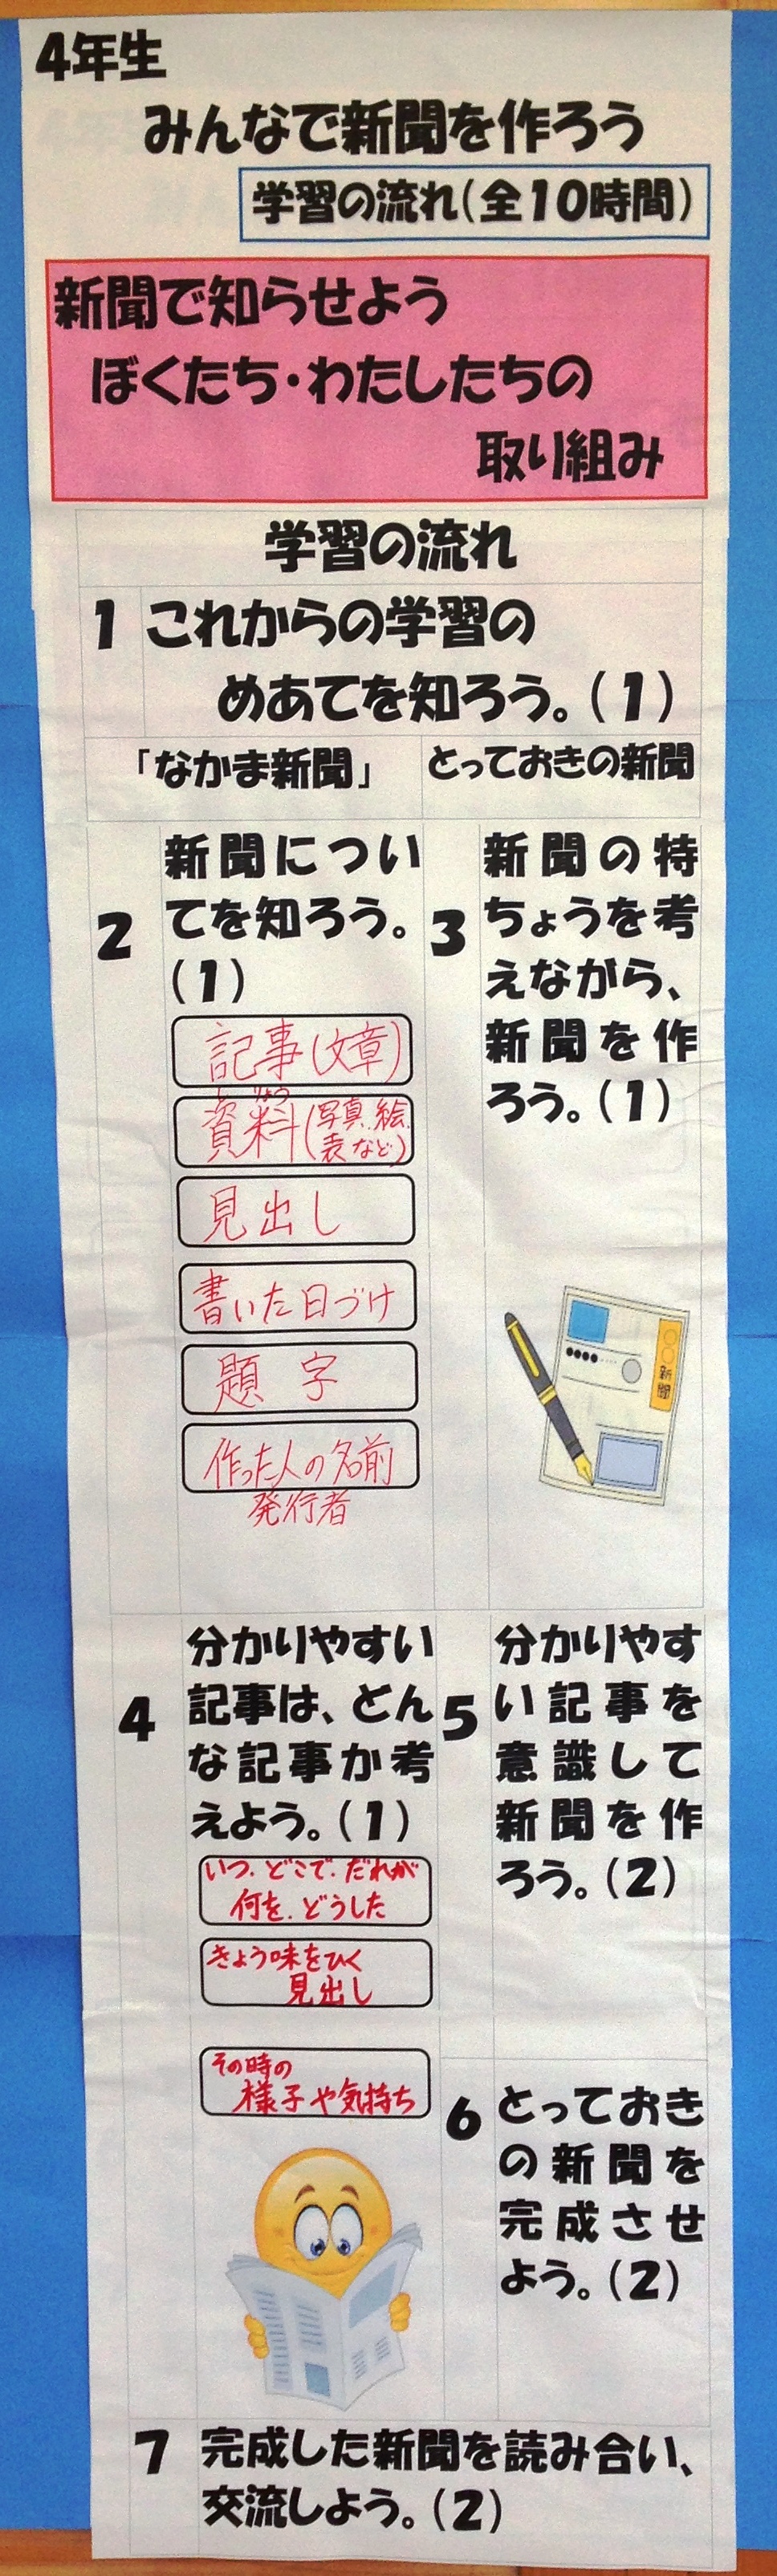 4年生
みんなで新聞を作ろう
学習の流れ(全10時間)
新聞で知らせよう
ぼくたち・わたしたちの
取り組み
学習の流れ
1 これからの学習の
めあてを知ろう。(1)
「なかま新聞」
とっておきの新聞
2
新聞につい
てを知ろう。
(1)
記事(文章)
しりょう
資料(写真、絵、
表など)
見出し
書いた日づけ
題字
作った人の名前
発行者
3
新聞の特
ちょうを考
えながら、
新聞を作
ろう。(1)
○○新聞
4
分かりやすい
記事は、どん
な記事か考
えよう。(1)
いつ.どこで.だれが
何を.どうした
きょう味をひく
見出し
その時の
様子や気持ち
5
分かりやす
い記事を
意識して
新聞を作
ろう。(2)
6
とっておき
の新聞を
完成させ
よう。(2)
7 完成した新聞を読み合い、
交流しよう。(2)